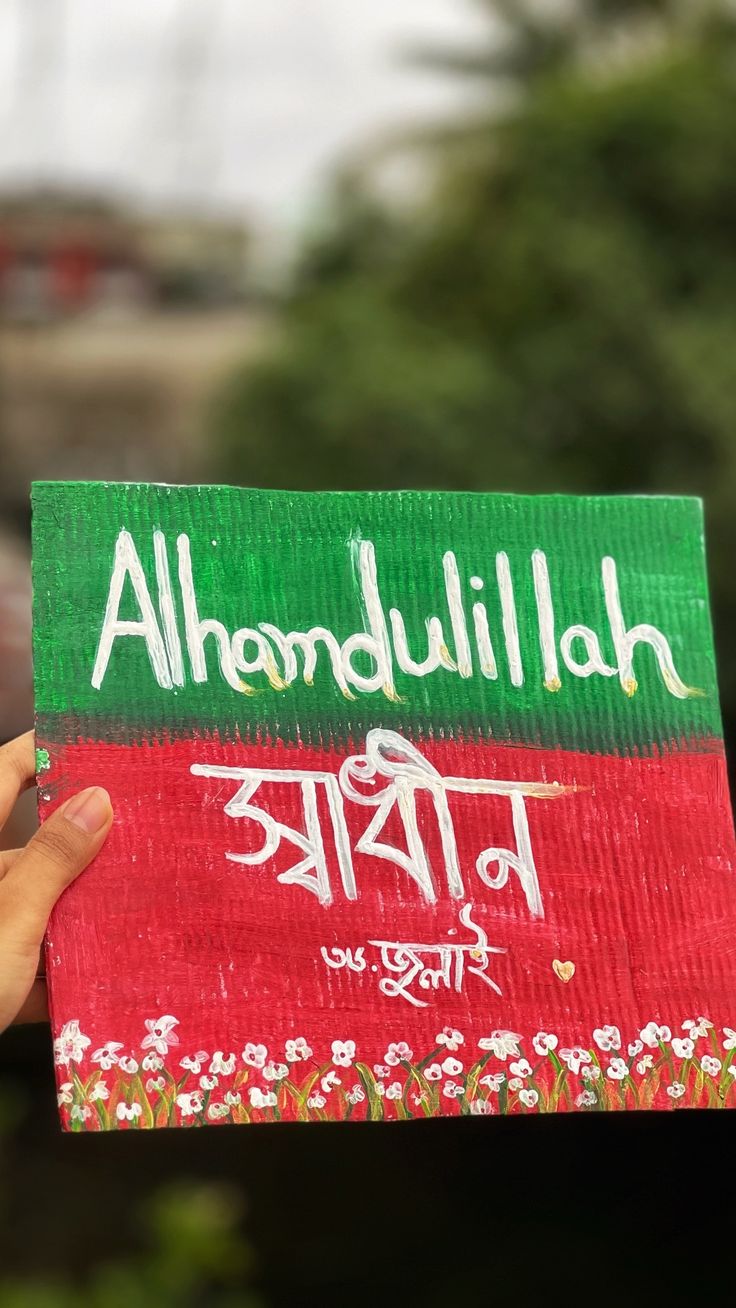 Alhamdulillah
স্বাধীন
৩৬. জুলাই